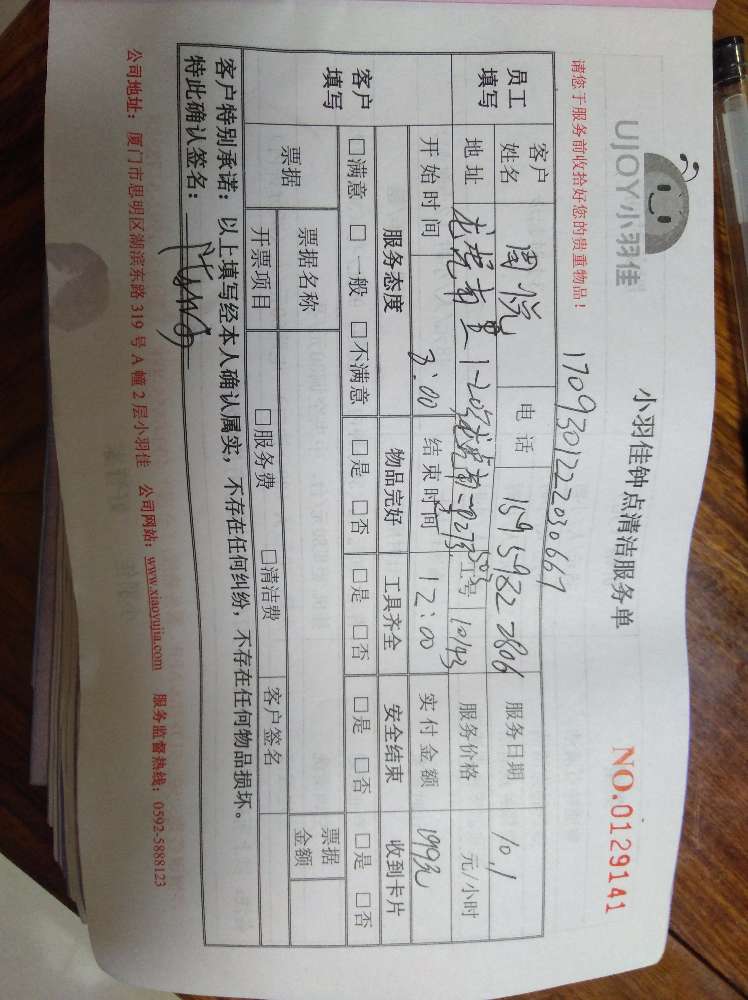 UJOY小羽佳
小羽佳钟点清洁服务单
NO.0129141
请您于服务前收拾好您的贵重物品！
170930122203066
员工填写
客户姓名 周悦 电话 服务日期 10.1
地址 工号 10143 服务价格 元/小时
开始时间 8:00 结束时间 12:00 实付金额 199元
客户填写
服务态度 物品完好 工具齐全 安全结束 收到卡片
□满意 □一般 □不满意 □是 □否 □是 □否 □是 □否 □是 □否
票据 票据名称 票据金额
开票项目 □服务费 □清洁费 客户签名
客户特别承诺：以上填写经本人确认属实，不存在任何纠纷，不存在任何物品损坏。
特此确认签名：
公司地址：厦门市思明区湖滨东路 319 号 A 幢 2 层小羽佳 公司网站：www.xiaoyujia.com 服务监督热线：0592-5888123